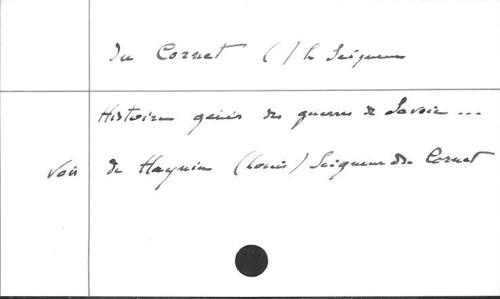 Du Cornet ( ) le Seigneur
Histoire génér des guerres de Savoie ...
voir de Haynin (Louis) Seigneur du Cornet